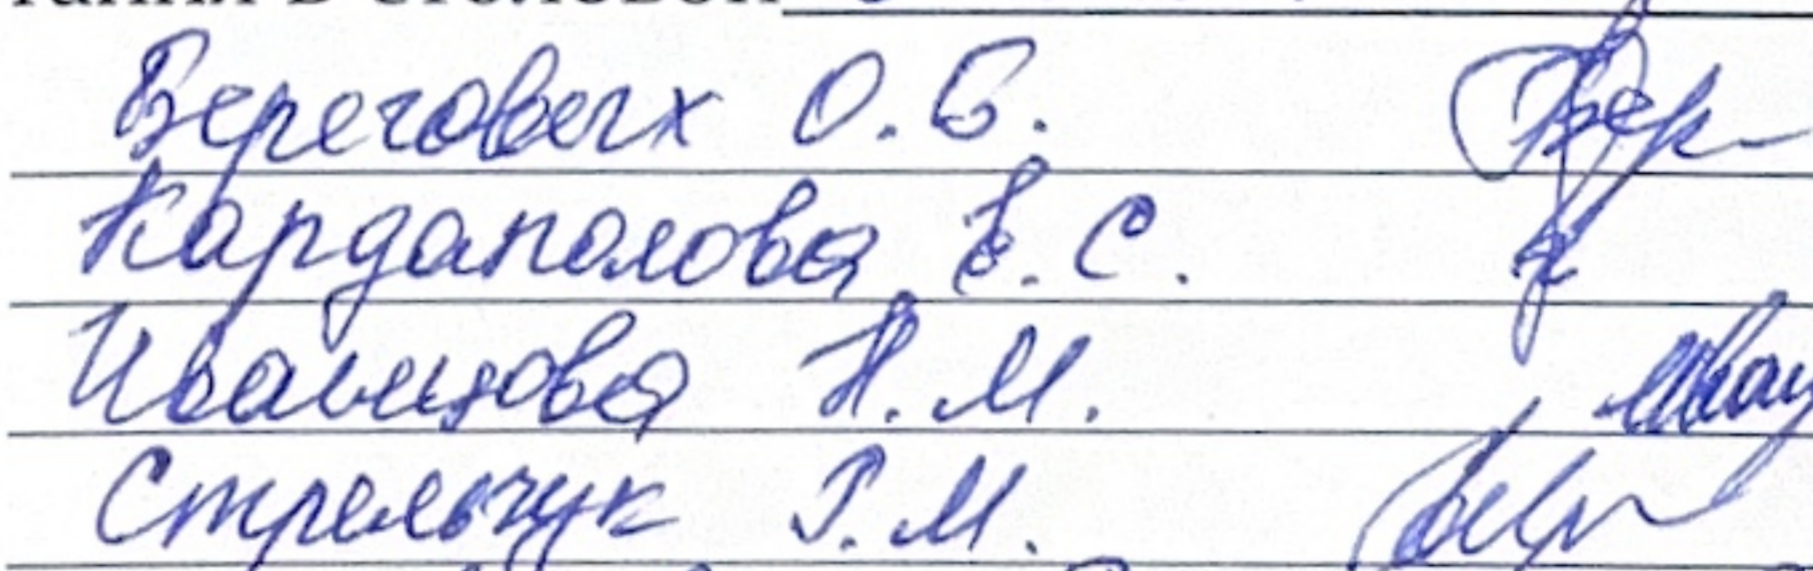 в столовой
Береговых О. В.
Кардаполова Е. С.
Иванцова Н. М.
Стрельчук Г. М.